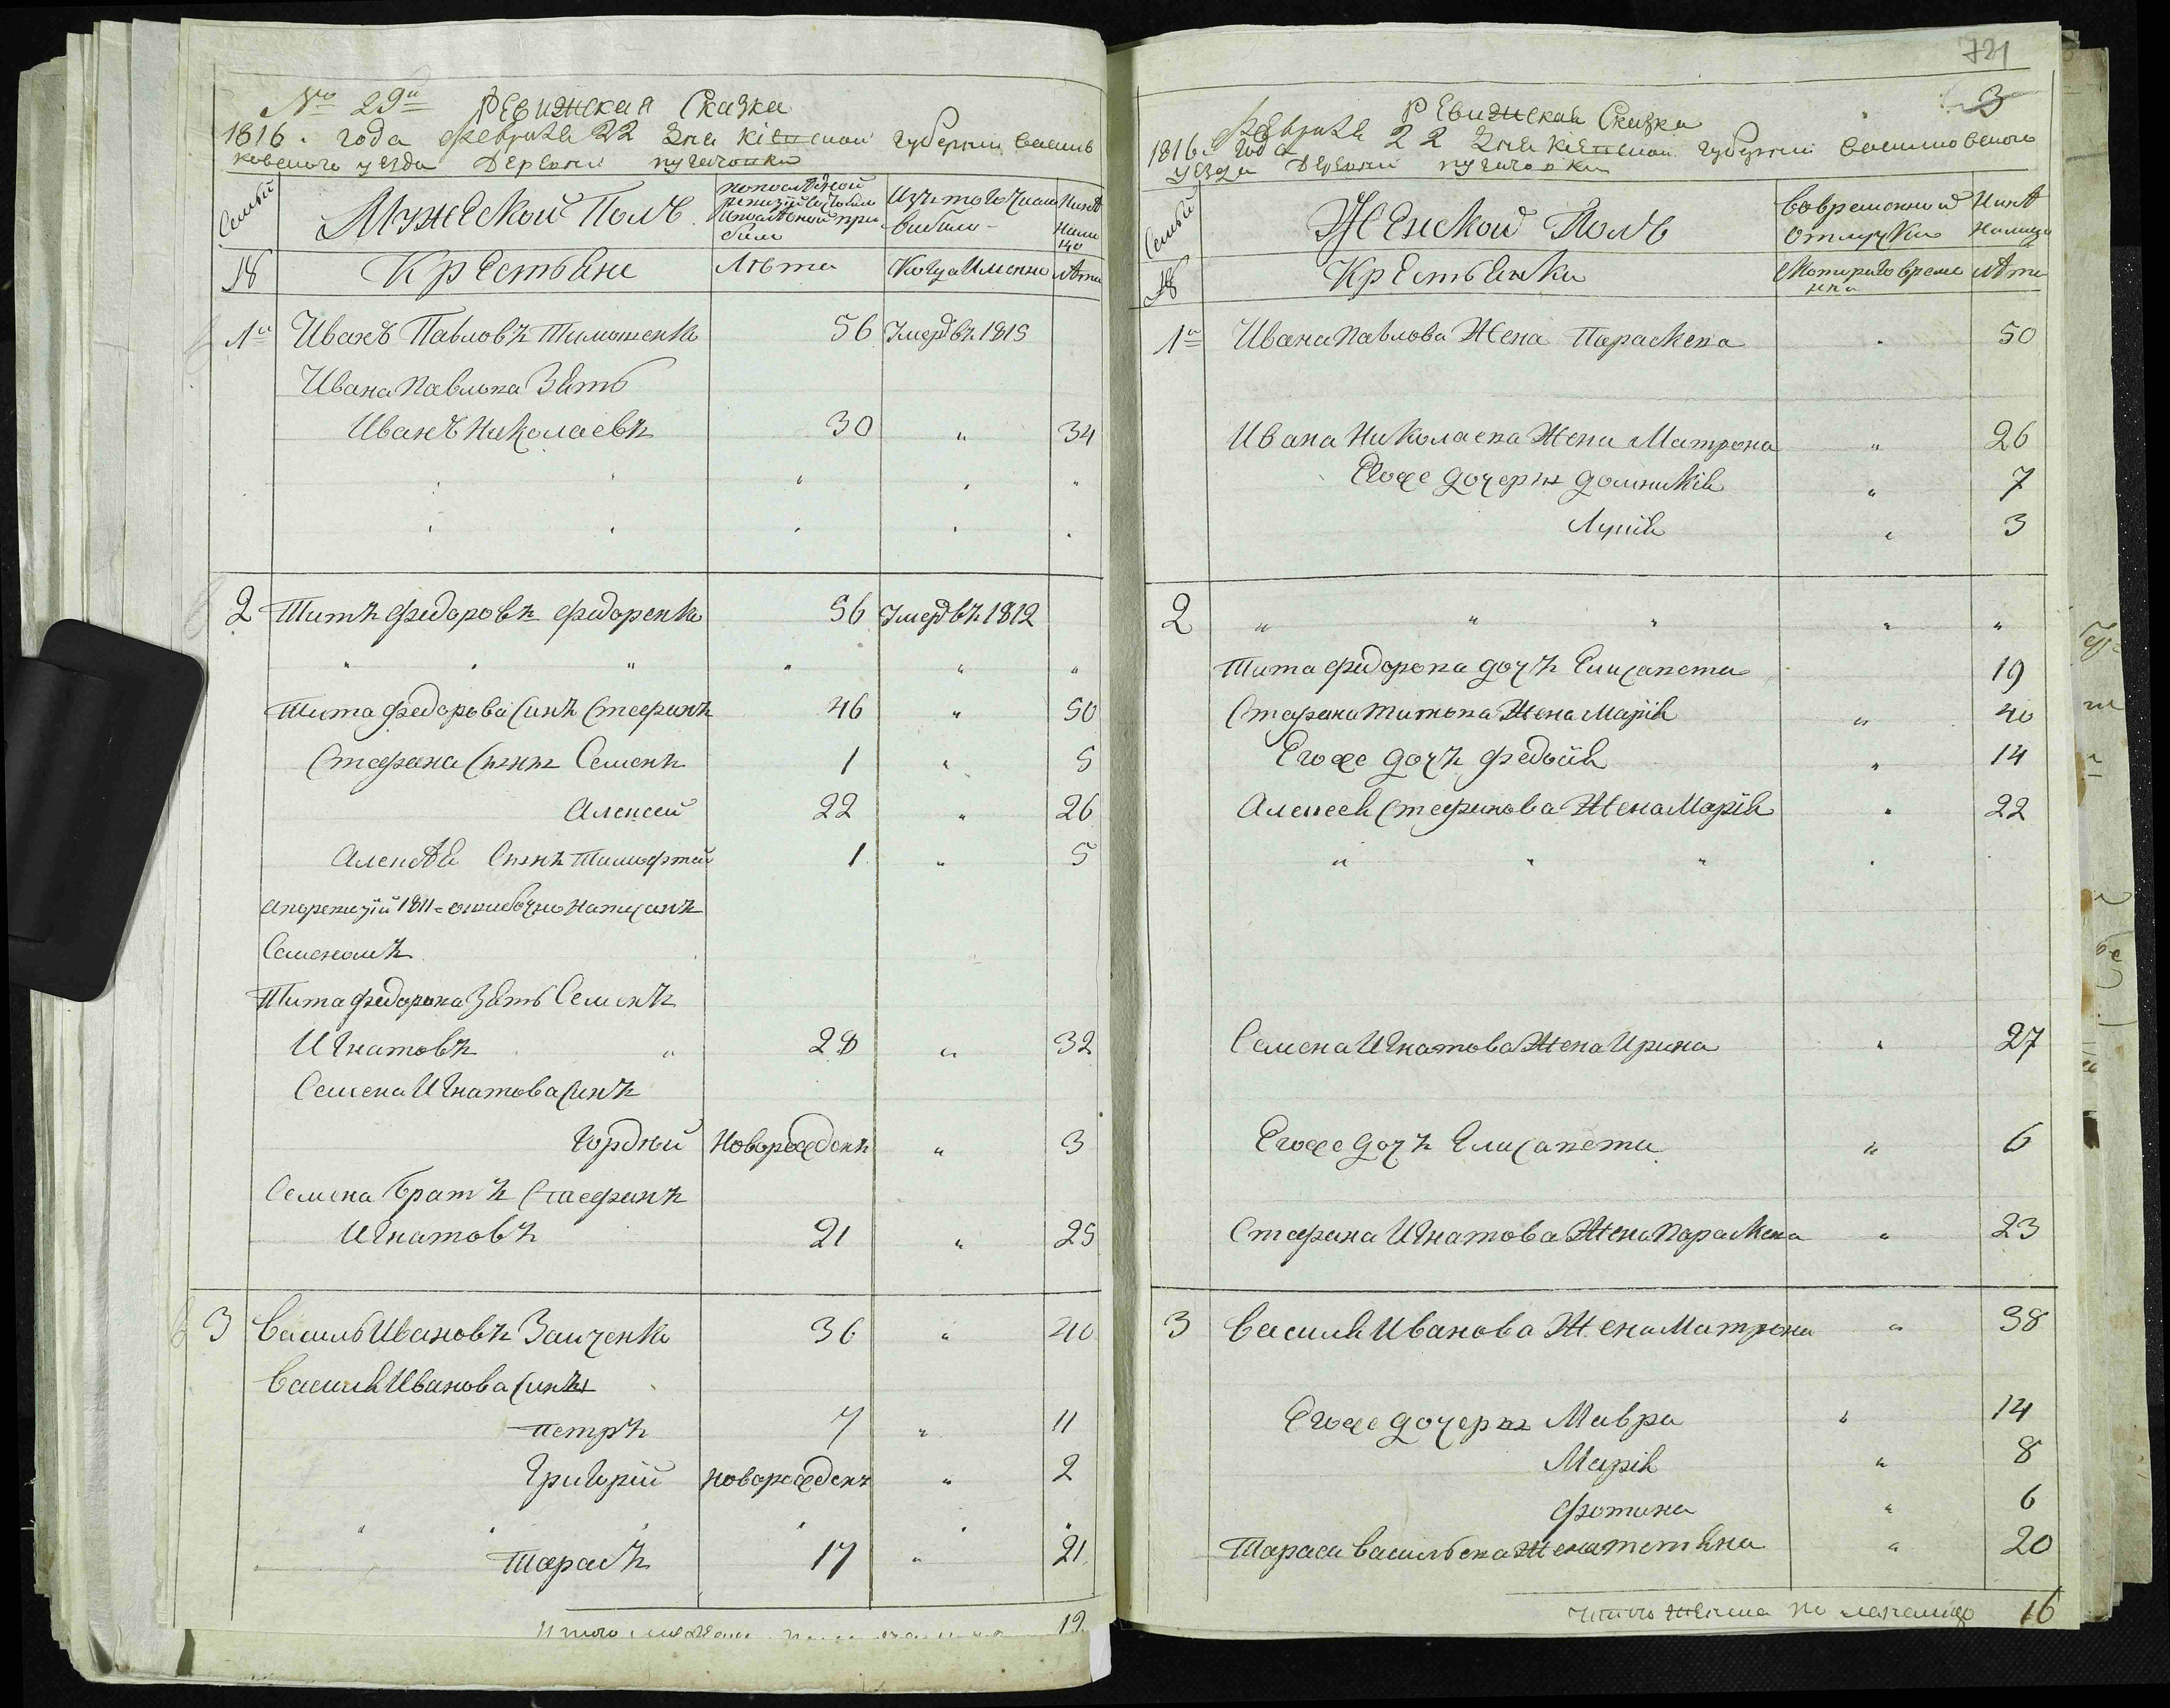 № 29й Ревизская Сказка
1816. года февраля 22 дня кіевской губерніи василь
ковского уезда деревни пугачовки
Семьи
Мужеской Полъ
по последной ревизіи состояло и последной при было
Изъ того числа выбыло
Ныне на лицо
№
Крестьяне
Лѣта
Когда Именно
лѣта
1й Иванъ Павловъ Тимошенко 56 Умеръ въ 1815
Ивана Павлова Зять
Иванъ Николаевъ 30 " 34
2 Титъ Федоровъ Федоренко 56 Умеръ въ 1812
Тита Федорова Синъ Стефанъ 46 " 50
Стефана Сыны Семенъ 1 " 5
Алексей 22 " 26
Алексѣя Сынъ Тимофтей 1 " 5
а по ревизіи 1811 = ошибочно написанъ
Семеномъ
Тита Федорова Зять Семенъ
Игнатовъ " 28 " 32
Семена Игнатова Синъ
Гордѣй Новорожденъ " 3
Семена братъ Стефанъ
Игнатовъ 21 " 25
3 Василь Ивановъ Заиченко 36 " 40
Василя Иванова Сины
Петръ 7 " 11
Григорій новорожденъ " 2
Тарасъ 17 " 21
Итого 12
721
3
Ревизская Сказка
1816. года февраля 22 дня кіевской губерніи василковского
уезда деревни пугачовки
Семьи
Женской Полъ
Во временной отлучки
Нинѣ на лицо
№
Крестьянки
С которого времени
лѣта
1я Ивана Павлова Жена Параскева " 50
Ивана Николаева Жена Матрона " 26
Егоже дочери Домникія " 7
Лукія " 3
2 " " " " "
Тита Федорова дочъ Елисавета 19
Стефана Титова Жена Марія " 40
Егоже дочъ Федосія " 14
Алексея Стефанова Жена Марія " 22
Семена Игнатова Жена Ирина " 27
Егоже дочъ Елисавета " 6
Стефана Игнатова Жена Параскева " 23
3 Василя Иванова Жена Матрона " 38
Егоже дочери Мавра " 14
Марія " 8
Фотина " 6
Тараса Васильева Жена Тетяна " 20
Итого Женска на лицо 16